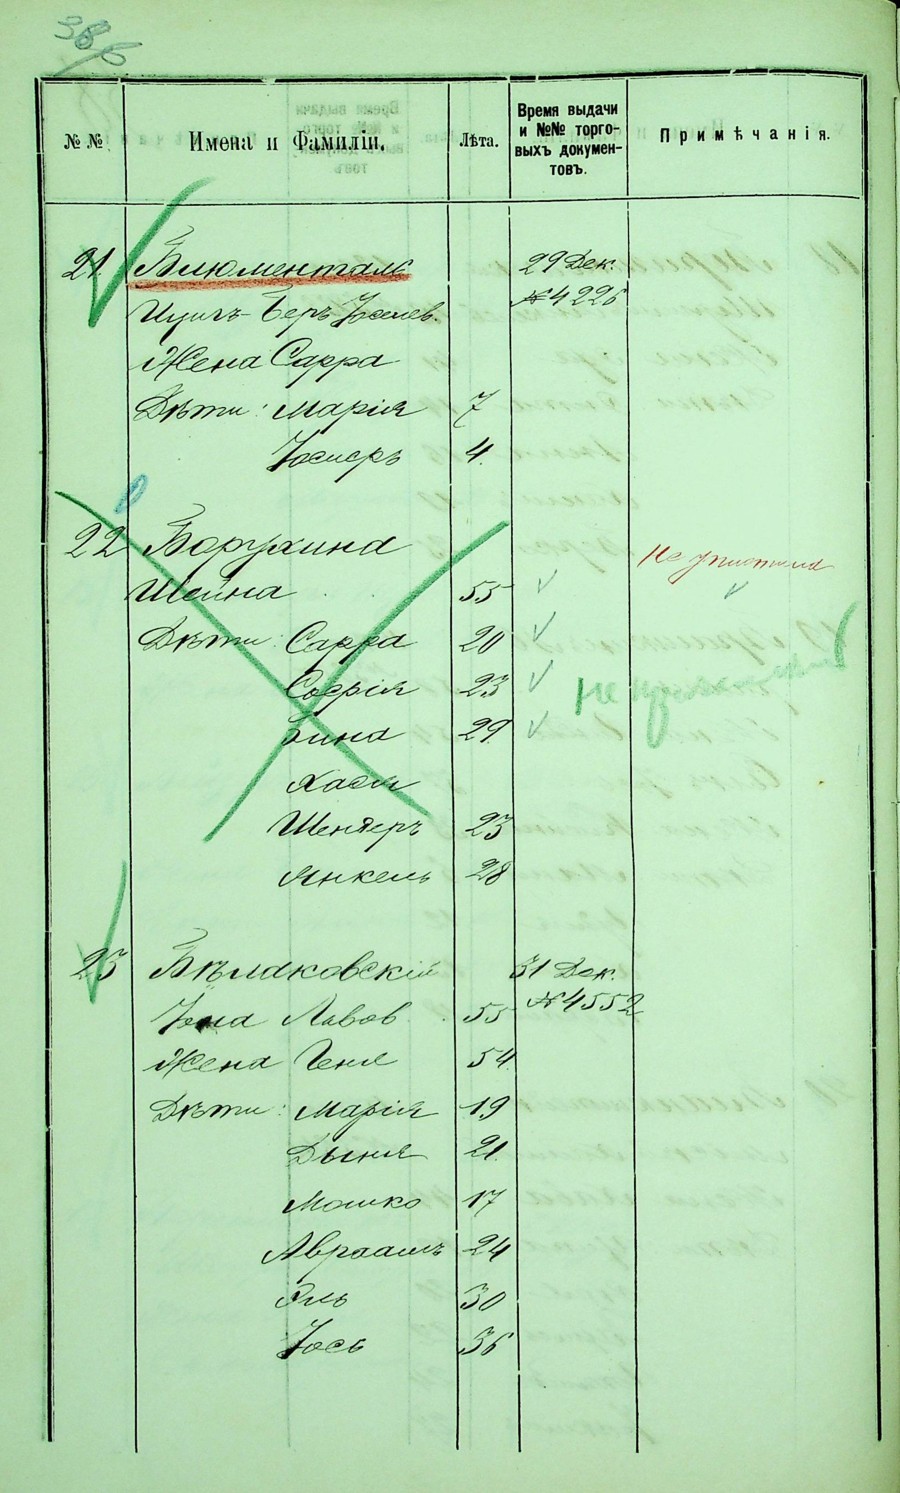 38б
№№
Имена и Фамиліи.
Лѣта.
Время выдачи
и №№ торго-
выхъ докумен-
товъ.
Примѣчанія.
21. Блюменталь 29 Дек.
Ицигъ-Беръ № 4226
Жена Сарра
Дѣти: Марія 7
Іосифъ 4.
22 Борухина Не
Шейна 55
Дѣти Сарра 20
Софія 23 Не
Бина 29.
Хася
Шендеръ 23
Янкель 28
23 Бѣлаковскій 31 Дек.
Іона Львов 55 № 4552
Жена Геня 54
Дѣти: Марія 19
Дыня 21
Мошко 17
Авраамъ 24
Эль 30
Іось 36